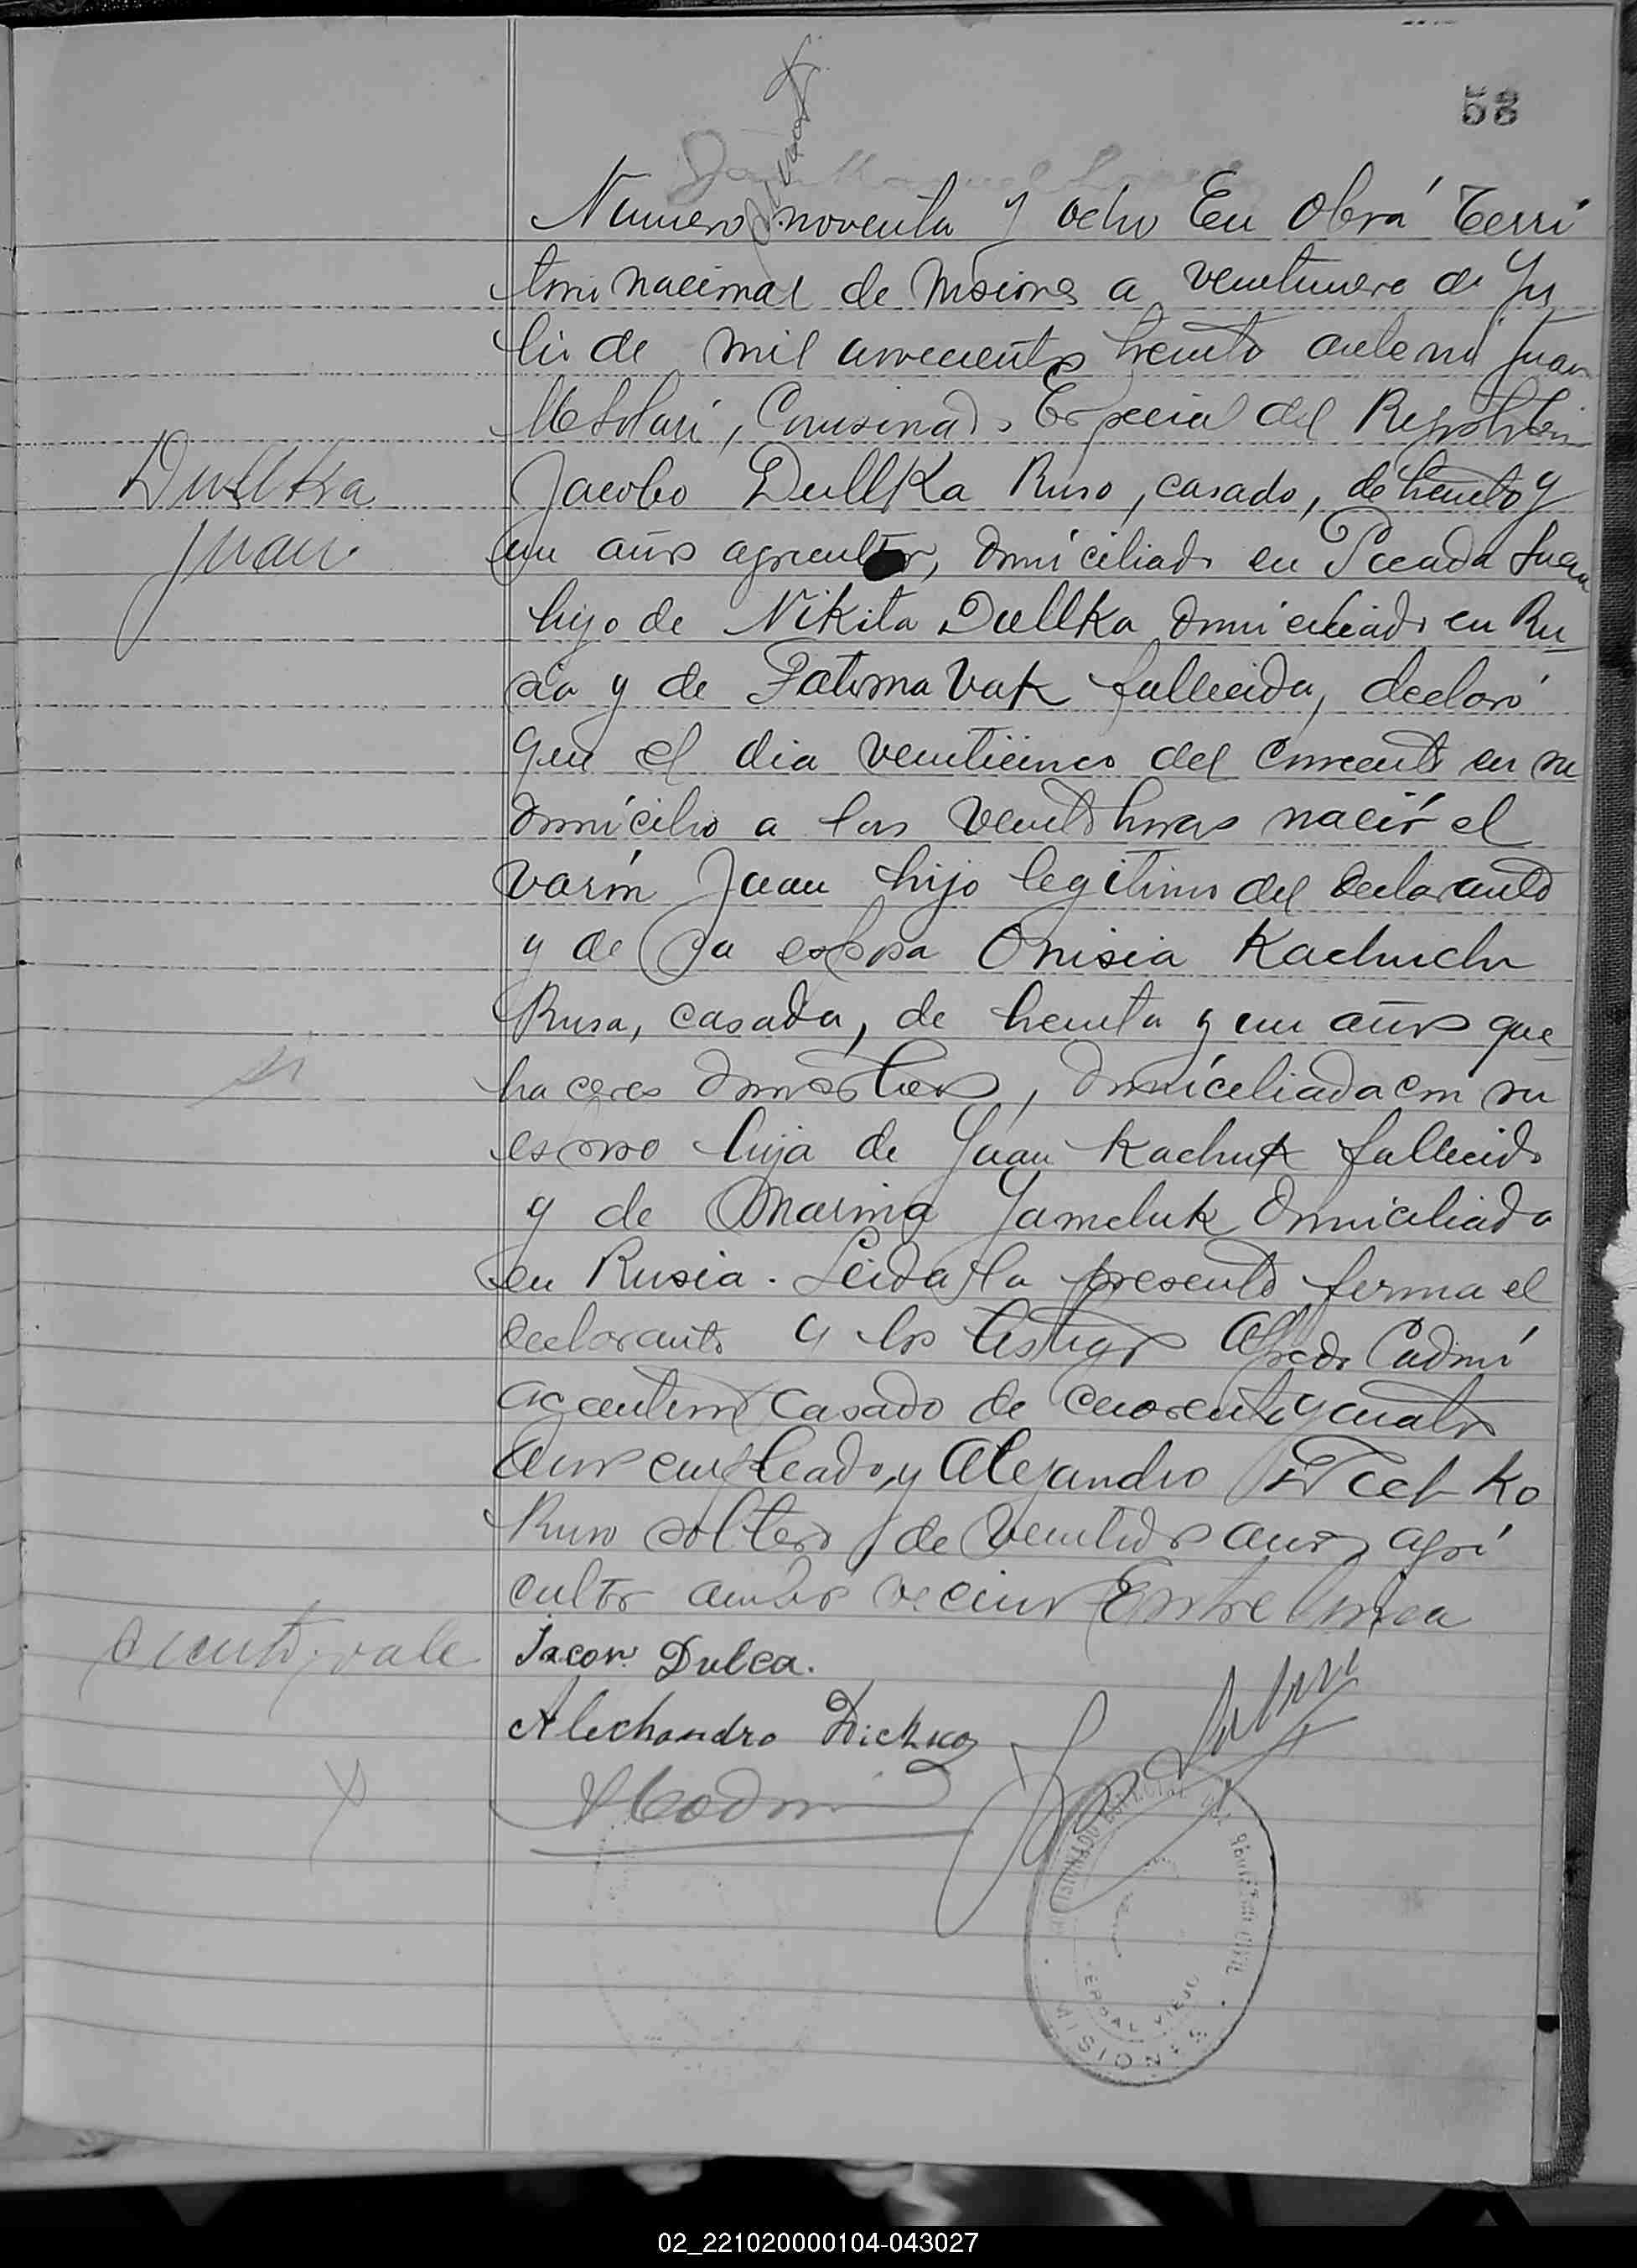 58
Numero noventa y ocho En Oberá Terri
torio nacional de Misiones a veintinueve de Ju
lio de mil novecientos treinta ante mi Juan
M Solari, Comisionado Especial del Registro Civil
Dullka
Juan
Jacobo Dullka Ruso, casado, de treinta y
un años agricultor, domiciliado en Picada Sueca
hijo de Nikita Dullka domiciliado en Ru
sia y de Fatima Vak fallecida, declaró
que el dia veinticinco del corriente en su
domicilio a las veinte horas nació el
varón Juan hijo legitimo del declarante
y de su esposa Onisia Kachuch
Rusa, casada, de treinta y un años que
haceres domesticos, domiciliada con su
esposo hija de Juan Kachuk fallecido
y de Marina Jameluk domiciliada
en Rusia. Leida la presente firma el
declarante y los testigos Alfredo Cadmi
argentino casado de cuarenta y cuatro
años empleado, y Alejandro
Ruso soltero de veintidos anos agri
cultor ambos vecinos Entre linea
vale
Jacov Dulca.
Alechandro
MISIONES
02_221020000104-043027